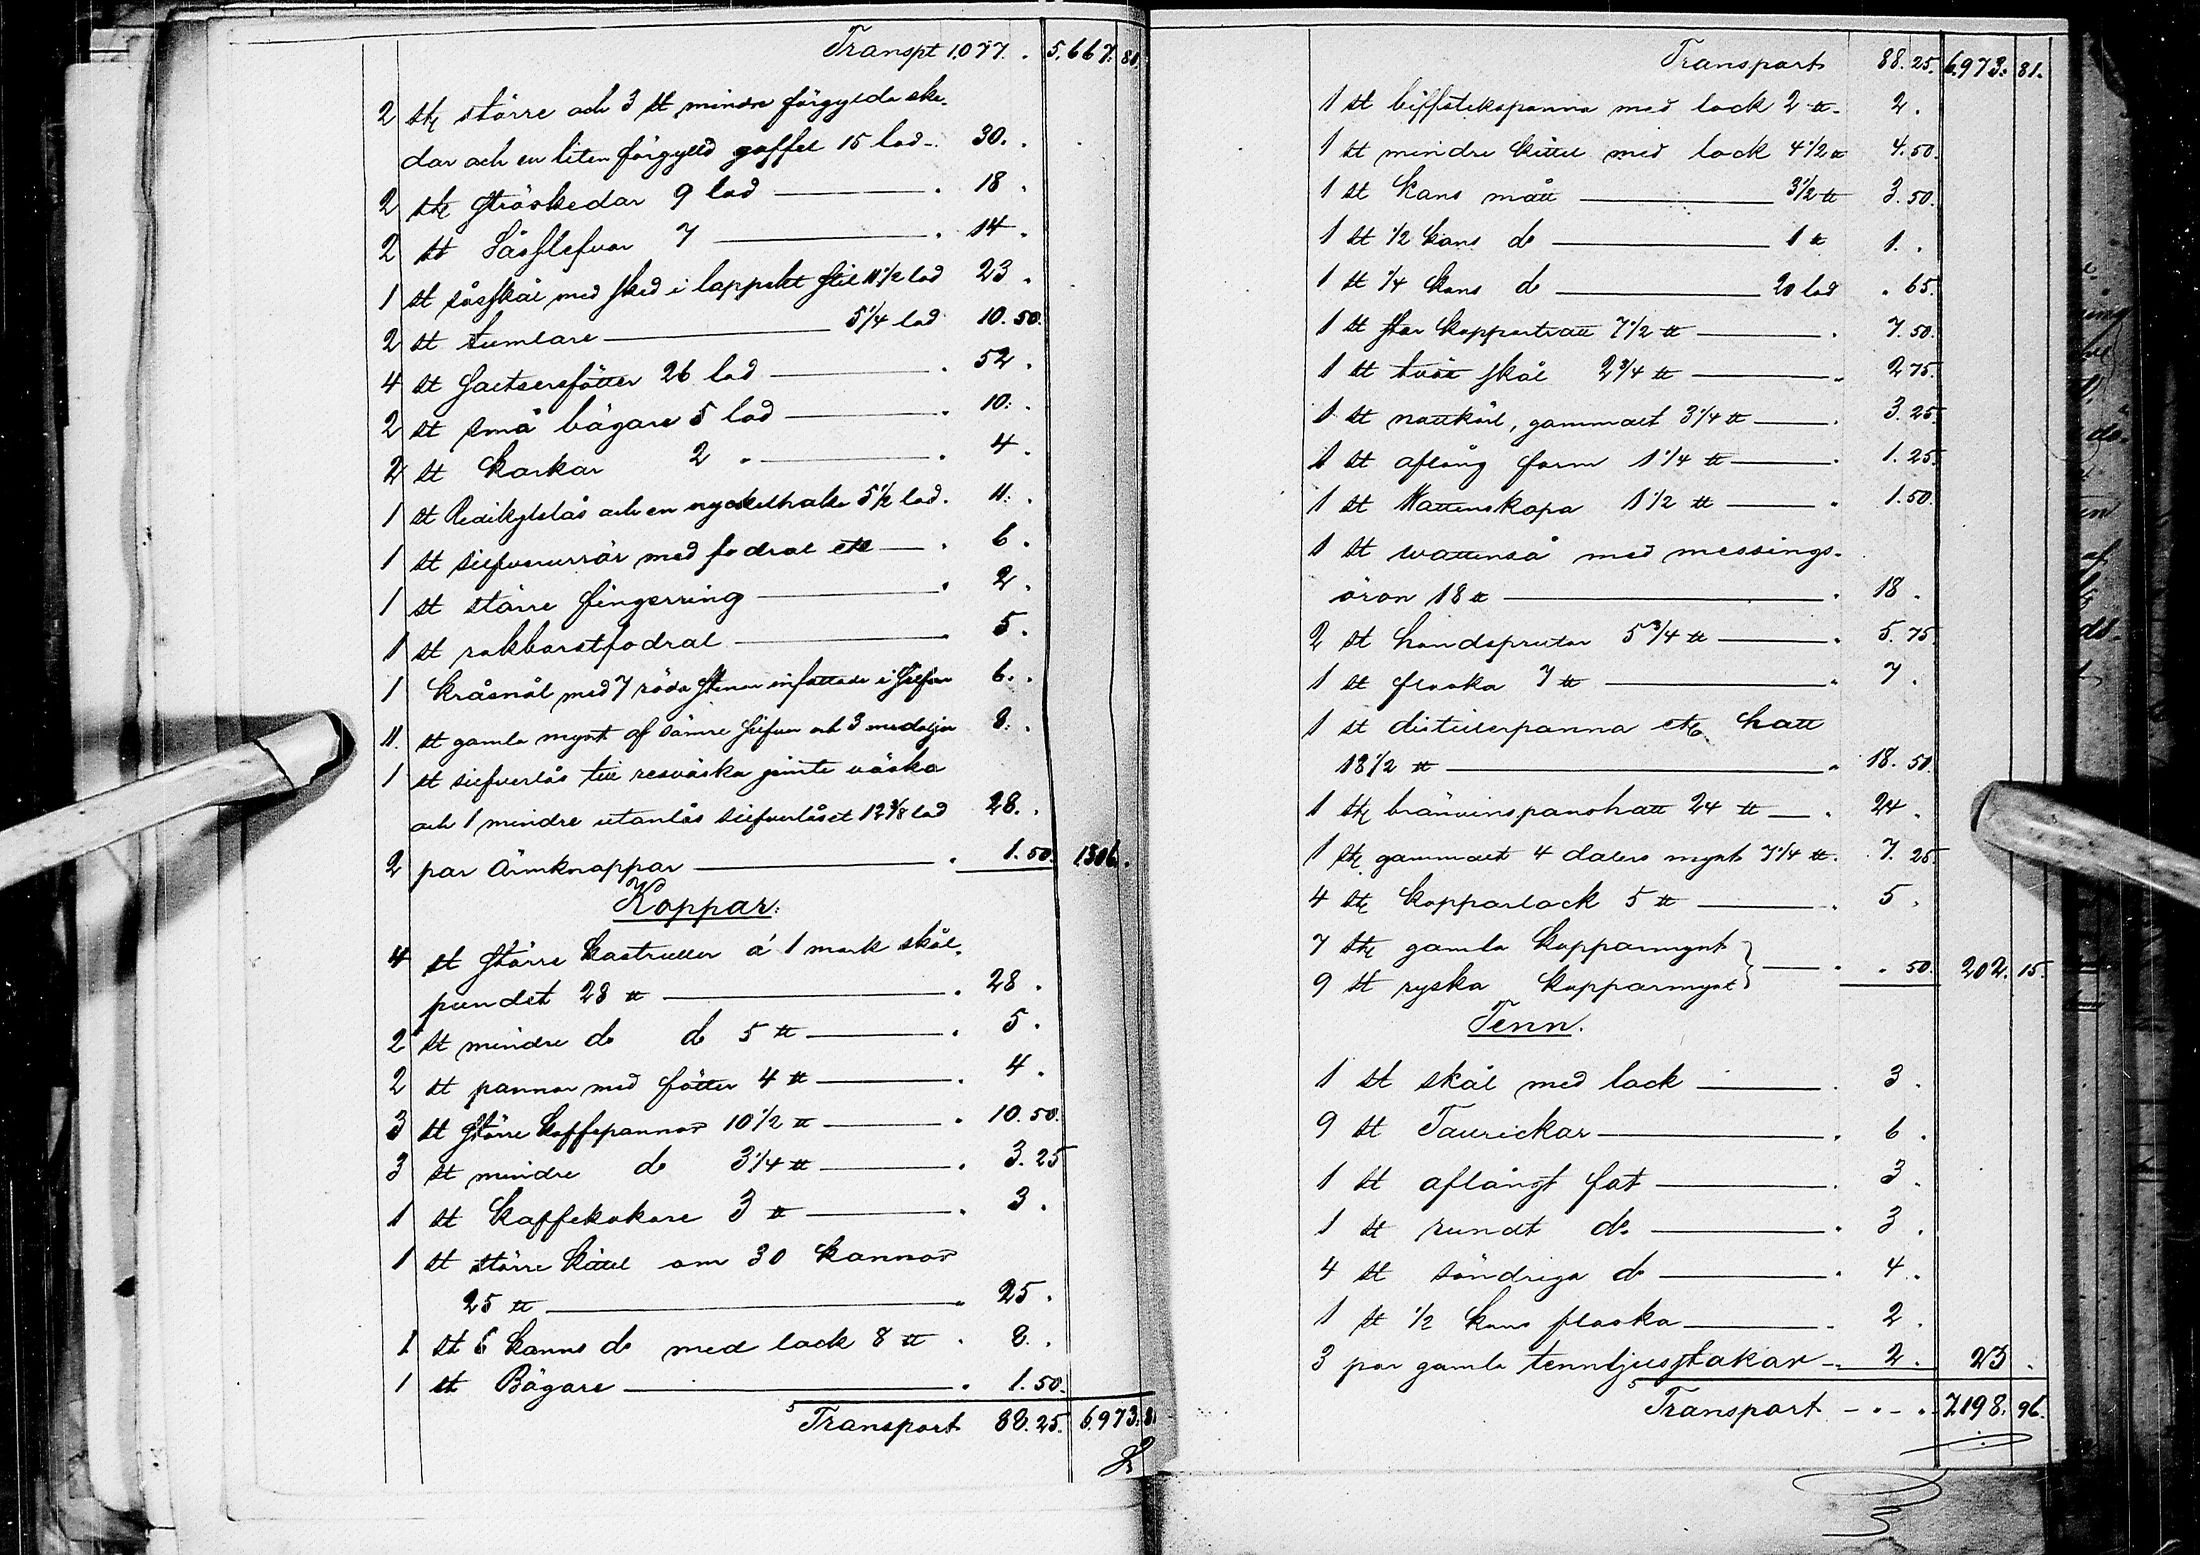 Transpt 1.077. . 5.667. 81.
2 stk större och 3 st mindre förgylda ske-
dar och en liten förgylld gaffel 15 lod -. 30. .
2 stk ströskedar 9 lod . 18 .
2 st Såsslefvar 7 . 14 .
1 st såsskål med sked i lappskt stil 11 1/2 lod 23 .
2 st tumlare 5 1/4 lod 10. 50.
4 st saltsersfötter 26 lod . 52 .
2 st små bägare 5 lod . 10. .
2 st kåskar 2 " . 4 .
1 st Redikylslås och en nyckelhake 5 1/2 lod. 11. .
1 st silfverurrör med fodral etc . 6 .
1 st större fingerring . 2 .
1 st rakborstfodral . 5 .
1 kråsnål med 7 röda stenar infattade i silfver 6. .
11. st gamla mynt af sämre silfver och 3 medaljer 8. .
1 st silfverlås till resväska jemte väska
och 1 mindre utanlås silfverlåset 12 3/8 lod 28. .
2 par Ärmknappar . 1. 50. 1306. .
Koppar:
4 st större kastruller á 1 mark skål-
pundet 28 ℔ . 28 .
2 st mindre do do 5 ℔ . 5 .
2 st pannor med fötter 4 ℔ . 4 .
3 st större kaffepannor 10 1/2 ℔ . 10. 50.
3 st mindre do 3 1/4 ℔ . 3. 25
1 st kaffekokare 3 ℔ . 3 .
1 st större kittel om 30 kannor
25 ℔ . 25 .
1 st 6 kanns do med lock 8 ℔ . 8. .
1 st Bägare . 1. 50.
Transport 88. 25. 6.973. 81.
Transport 88. 25. 6.973. 81.
1 st biffstekspanna med lock 2 ℔. 2 .
1 st mindre kittel med lock 4 1/2 ℔ 4. 50.
1 st kans mått 3 1/2 ℔ 3. 50.
1 st 1/2 kans do 1 ℔ 1. .
1 st 1/4 kans do 20 lod . 65.
1 st stor koppartratt 7 1/2 ℔ . 7. 50.
1 st tvål skål 2 3/4 ℔ . 2 75.
1 st nattkärl, gammalt 3 1/4 ℔ . 3. 25.
1 st aflång form 1 1/4 ℔ . 1. 25.
1 st Wattenskopa 1 1/2 ℔ . 1. 50.
1 st wattenså med messings-
öron 18 ℔ . 18 .
2 st handsprutor 5 3/4 ℔ . 5. 75.
1 st flaska 7 ℔ . 7 .
1 st distillerpanna etc hatt
18 1/2 ℔ . 18. 50.
1 stk brännvinspanshatt 24 ℔ . 24 .
1 stk gammalt 4 dalers mynt 7 1/4 ℔. 7. 25.
4 stk kopparlock 5 ℔ . 5 .
7 stk gamla kopparmynt
9 st ryska kopparmynt } . . 50. 202. 15.
Tenn.
1 st skål med lock . 3 .
9 st Tallrickar . 6 .
1 st aflångt fat . 3 .
1 st rundt do . 3 .
4 st söndriga do . 4 .
1 st 1/2 kans flaska . 2 .
3 par gamla tennljusstakar . 2 . 23 .
Transport - . - . 7.198. 96.